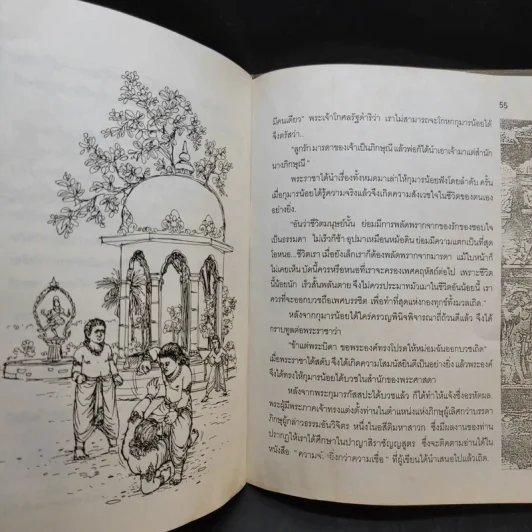 55
มีคนเดียว" พระเจ้าโกศลรัฐดำริว่า เราไม่สามารถจะโกหกกุมารน้อยได้
จึงตรัสว่า...
"ลูกรัก มารดาของเจ้าเป็นภิกษุณี แล้วพ่อก็ได้นำเอาเจ้ามาแต่สำนัก
นางภิกษุณี"
พระราชาได้นำเรื่องทั้งหมดมาเล่าให้กุมารน้อยฟังโดยลำดับ ครั้น
เมื่อกุมารน้อยได้รู้ความจริงแล้วจึงเกิดความสังเวชใจในชีวิตของตนเอง
อย่างยิ่ง.
"อันว่าชีวิตมนุษย์นั้น ย่อมมีการพลัดพรากจากของรักของชอบใจ
เป็นธรรมดา ไม่เร็วก็ช้า อุปมาเหมือนหม้อดิน ย่อมมีความแตกเป็นที่สุด
โอหนอ...ชีวิตเรา เมื่อยังเล็กเราก็ต้องพลัดพรากจากมารดา แม้ใบหน้าก็
ไม่เคยเห็น บัดนี้ควรหรือหนอที่เราจะครองเพศคฤหัสถ์ต่อไป เพราะชีวิต
นี้น้อยนัก เร็วสั้นพลันตาย จึงไม่ควรประมาทมัวเมาในชีวิตอันน้อยนี้ เรา
ควรที่จะออกบวชถือเพศบรรพชิต เพื่อทำที่สุดแห่งกองทุกข์ทั้งมวลเถิด."
หลังจากกุมารน้อยได้ใคร่ครวญพินิจพิจารณาถี่ถ้วนดีแล้ว จึงได้
กราบทูลต่อพระราชาว่า
"ข้าแต่พระบิดา ขอพระองค์ทรงโปรดให้หม่อมฉันออกบวชเถิด"
เมื่อพระราชาได้สดับ จึงได้เกิดความโสมนัสยินดีเป็นอย่างยิ่งแล้วพระองค์
จึงได้ทรงให้กุมารน้อยได้บวชในสำนักของพระศาสดา
หลังจากพระกุมารกัสสปะได้บวชแล้ว ก็ได้ทำให้แจ้งซึ่งอรหัตผล
พระผู้มีพระภาคเจ้าทรงแต่งตั้งท่านในตำแหน่งแห่งภิกษุผู้เลิศกว่าบรรดา
ภิกษุผู้กล่าวธรรมอันวิจิตร หนึ่งในอสีติมหาสาวก ซึ่งมีผลงานของท่าน
ปรากฏให้เราได้ศึกษาในปายาสิราชัญญสูตร ซึ่งจะติดตามอ่านได้ใน
หนังสือ "ความจริงยิ่งกว่าความเชื่อ" ที่ผู้เขียนได้นำเสนอไปแล้วเถิด.